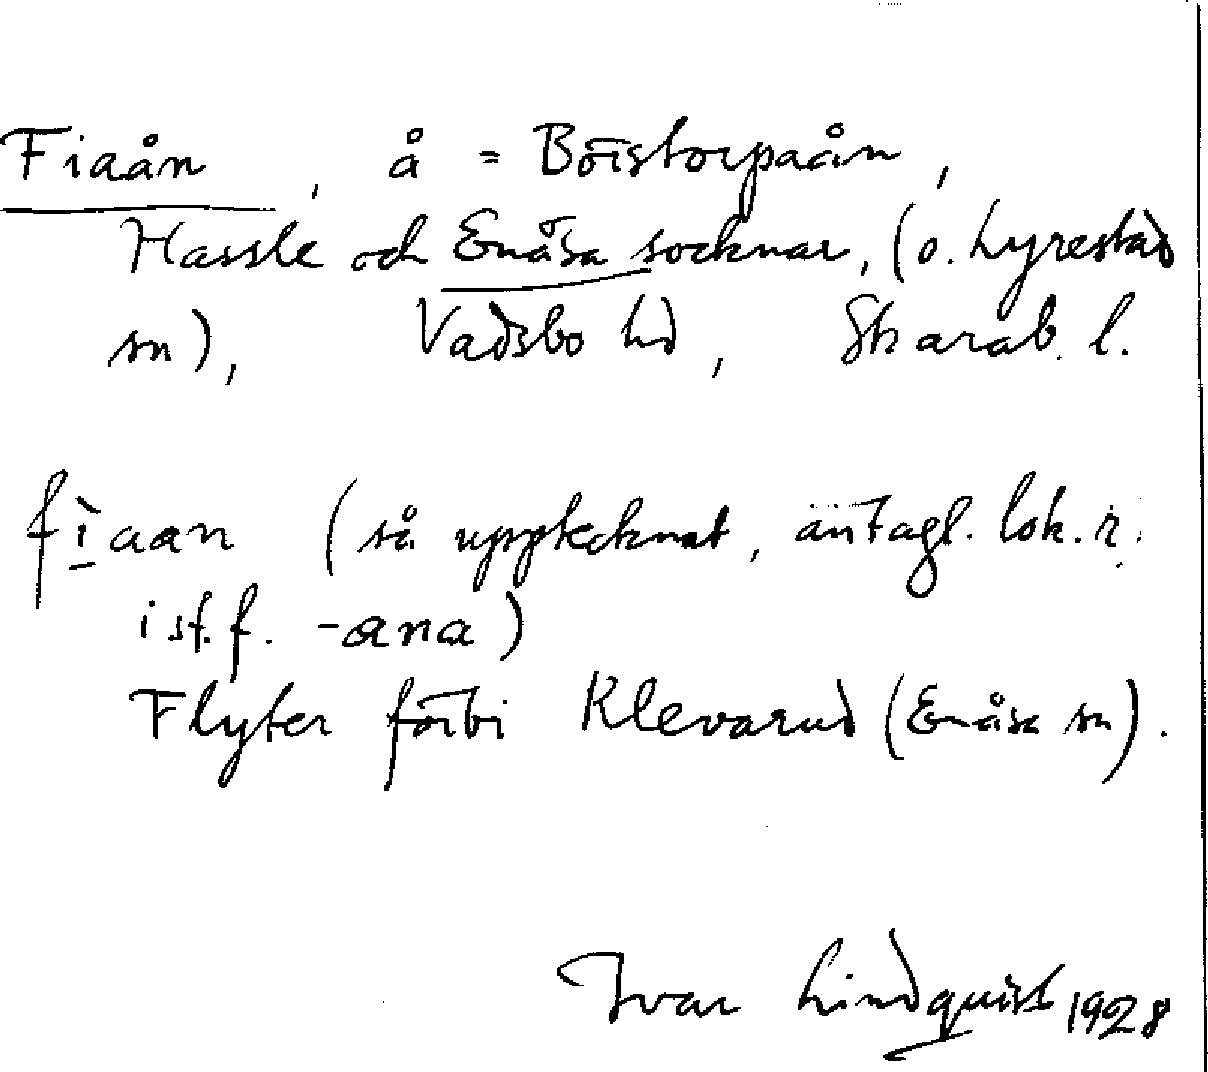 Fiaån, å = Börstorpaån,
Hassle och Enåsa socknar, (o. Lyrestad
sn), Vadsbo hd, Skarab. l.
fìaan (så upptecknat, antagl. lok. r.
i st. f. -ana)
Flyter förbi Klevarud (Enåsa sn).
Ivar Lindquist 1928